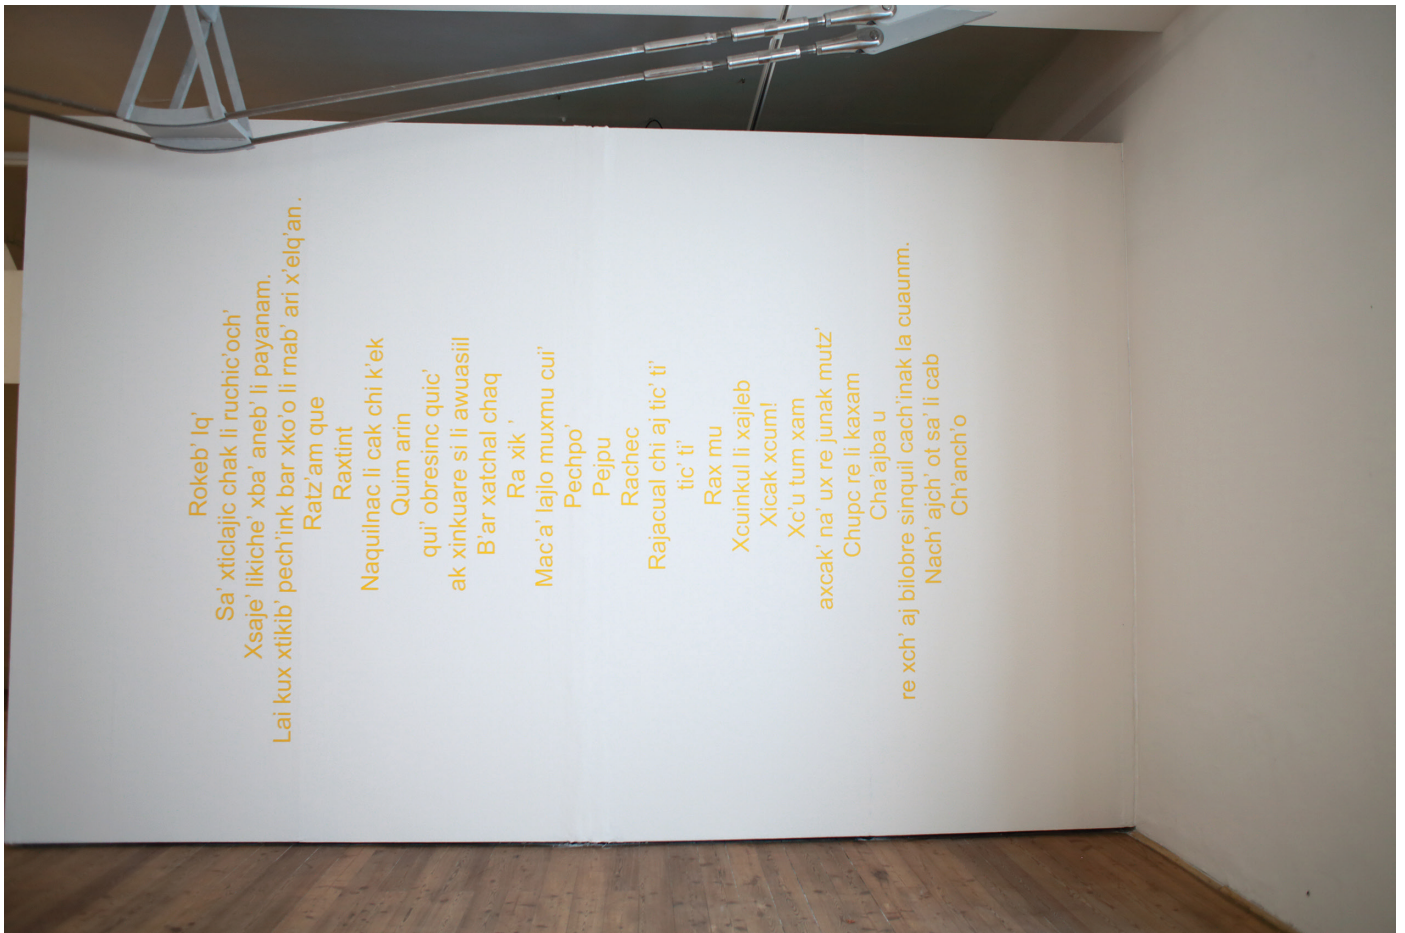 Rokeb' Iq'
Sa' xticlajic chak li ruchic'och'
Xsaje' likiche' xba' aneb' li payanam.
Lai kux xtikib' pech'ink bar xko'o li rnab' ari x'elq'an.
Ratz'am que
Raxtint
Naquilnac li cak chi k'ek
Quim arin
qui' obresinc quic'
ak xinkuare si li awuasiil
B'ar xatchal chaq
Ra xik '
Mac'a' lajlo muxmu cui'
Pechpo'
Pejpu
Rachec
Rajacual chi aj tic' ti'
tic' ti'
Rax mu
Xcuinkul li xajleb
Xicak xcum!
Xc'u tum xam
axcak' na' ux re junak mutz'
Chupc re li kaxam
Cha'ajba u
re xch' aj bilobre sinquil cach'inak la cuaunm.
Nach' ajch' ot sa' li cab
Ch'anch'o